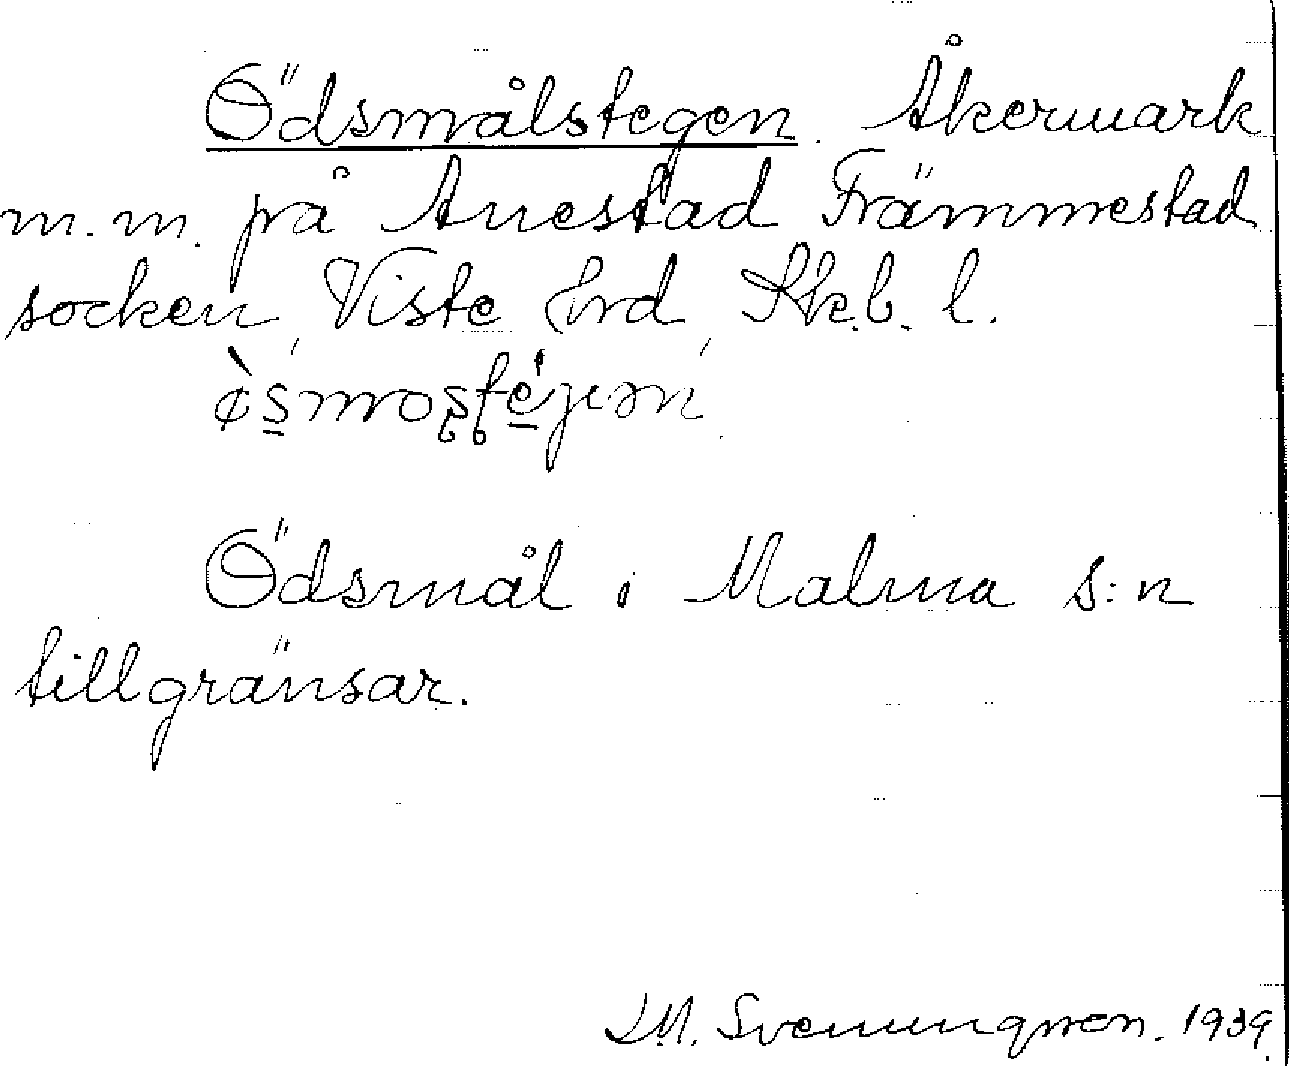 Ödsmålstegen. Åkermark
m.m. på Anestad Främmestad
socken Viste hrd Skb. l.
Ödsmål i Malma s:n
tillgränsar.
I.M. Svenungsson. 1939.